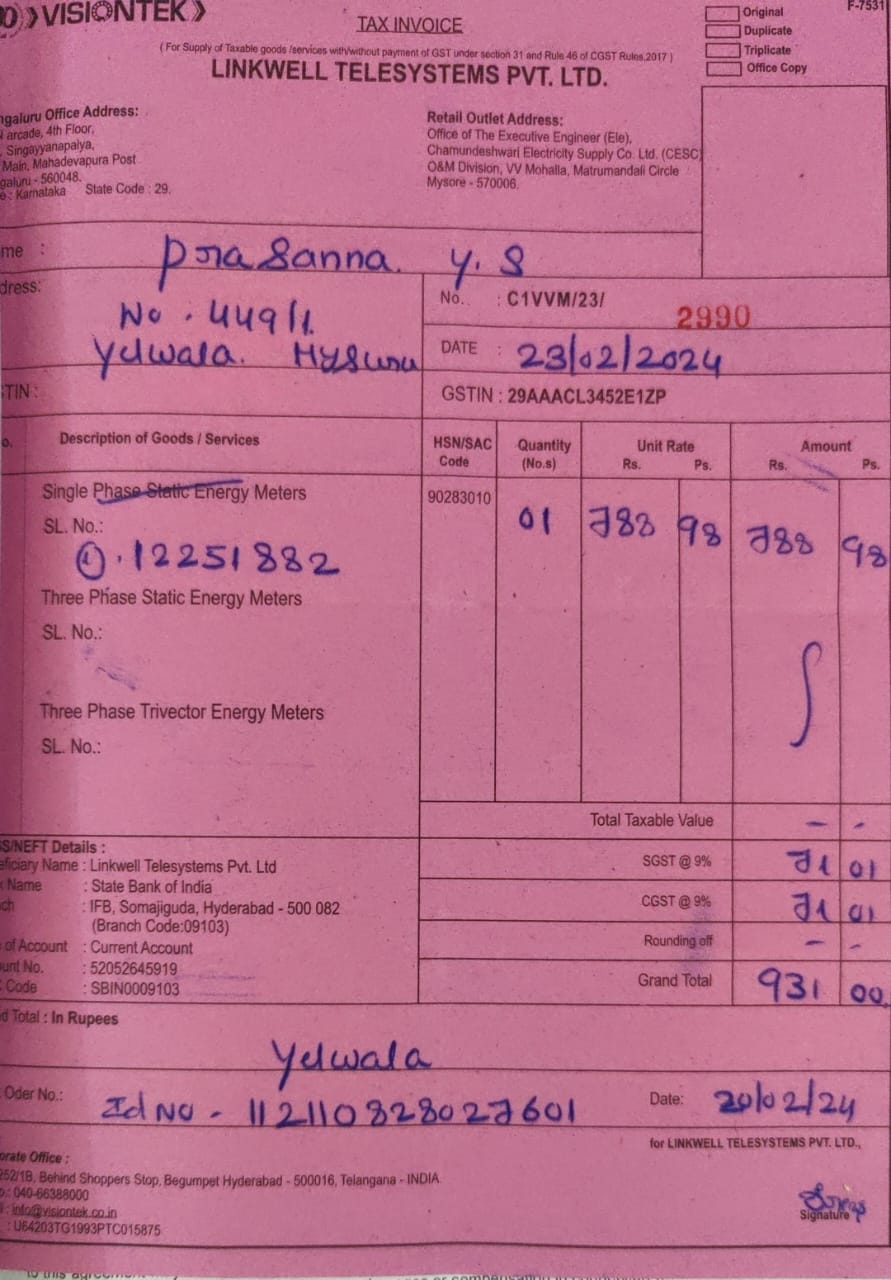 VISIONTEK
TAX INVOICE
Original
F-7531
Duplicate
Triplicate
Office Copy
( For Supply of Taxable goods /services with/without payment of GST under section 31 and Rule 46 of CGST Rules,2017 )
LINKWELL TELESYSTEMS PVT. LTD.
ngaluru Office Address:
arcade, 4th Floor,
Singayyanapalya,
Main, Mahadevapura Post
galuru - 560048.
e : Karnataka State Code : 29.
Retail Outlet Address:
Office of The Executive Engineer (Ele),
Chamundeshwari Electricity Supply Co. Ltd. (CESC)
O&M Division, VV Mohalla, Matrumandali Circle
Mysore - 570006.
me : Prasanna. Y. S
dress: No. 449/1.
Yelwala. Mysuru
No. : C1VVM/23/ 2990
DATE : 23/02/2024
TIN :
GSTIN : 29AAACL3452E1ZP
o. Description of Goods / Services HSN/SAC Code Quantity (No.s) Unit Rate Rs. Ps. Amount Rs. Ps.
Single Phase Static Energy Meters 90283010 01 788 98 788 98
SL. No.:
①. 12251882
Three Phase Static Energy Meters
SL. No.:
Three Phase Trivector Energy Meters
SL. No.:
Total Taxable Value - -
SGST @ 9% 71 01
CGST @ 9% 71 01
Rounding off - -
Grand Total 931 00
S/NEFT Details :
eficiary Name : Linkwell Telesystems Pvt. Ltd
Name : State Bank of India
ch : IFB, Somajiguda, Hyderabad - 500 082
(Branch Code:09103)
of Account : Current Account
unt No. : 52052645919
Code : SBIN0009103
d Total : In Rupees
Yelwala
Oder No.: Id No - 112110828027601
Date: 20/02/24
for LINKWELL TELESYSTEMS PVT. LTD.,
orate Office :
952/1B, Behind Shoppers Stop, Begumpet Hyderabad - 500016, Telangana - INDIA
: 040-66388000
: info@visiontek.co.in
: U64203TG1993PTC015875
Signature